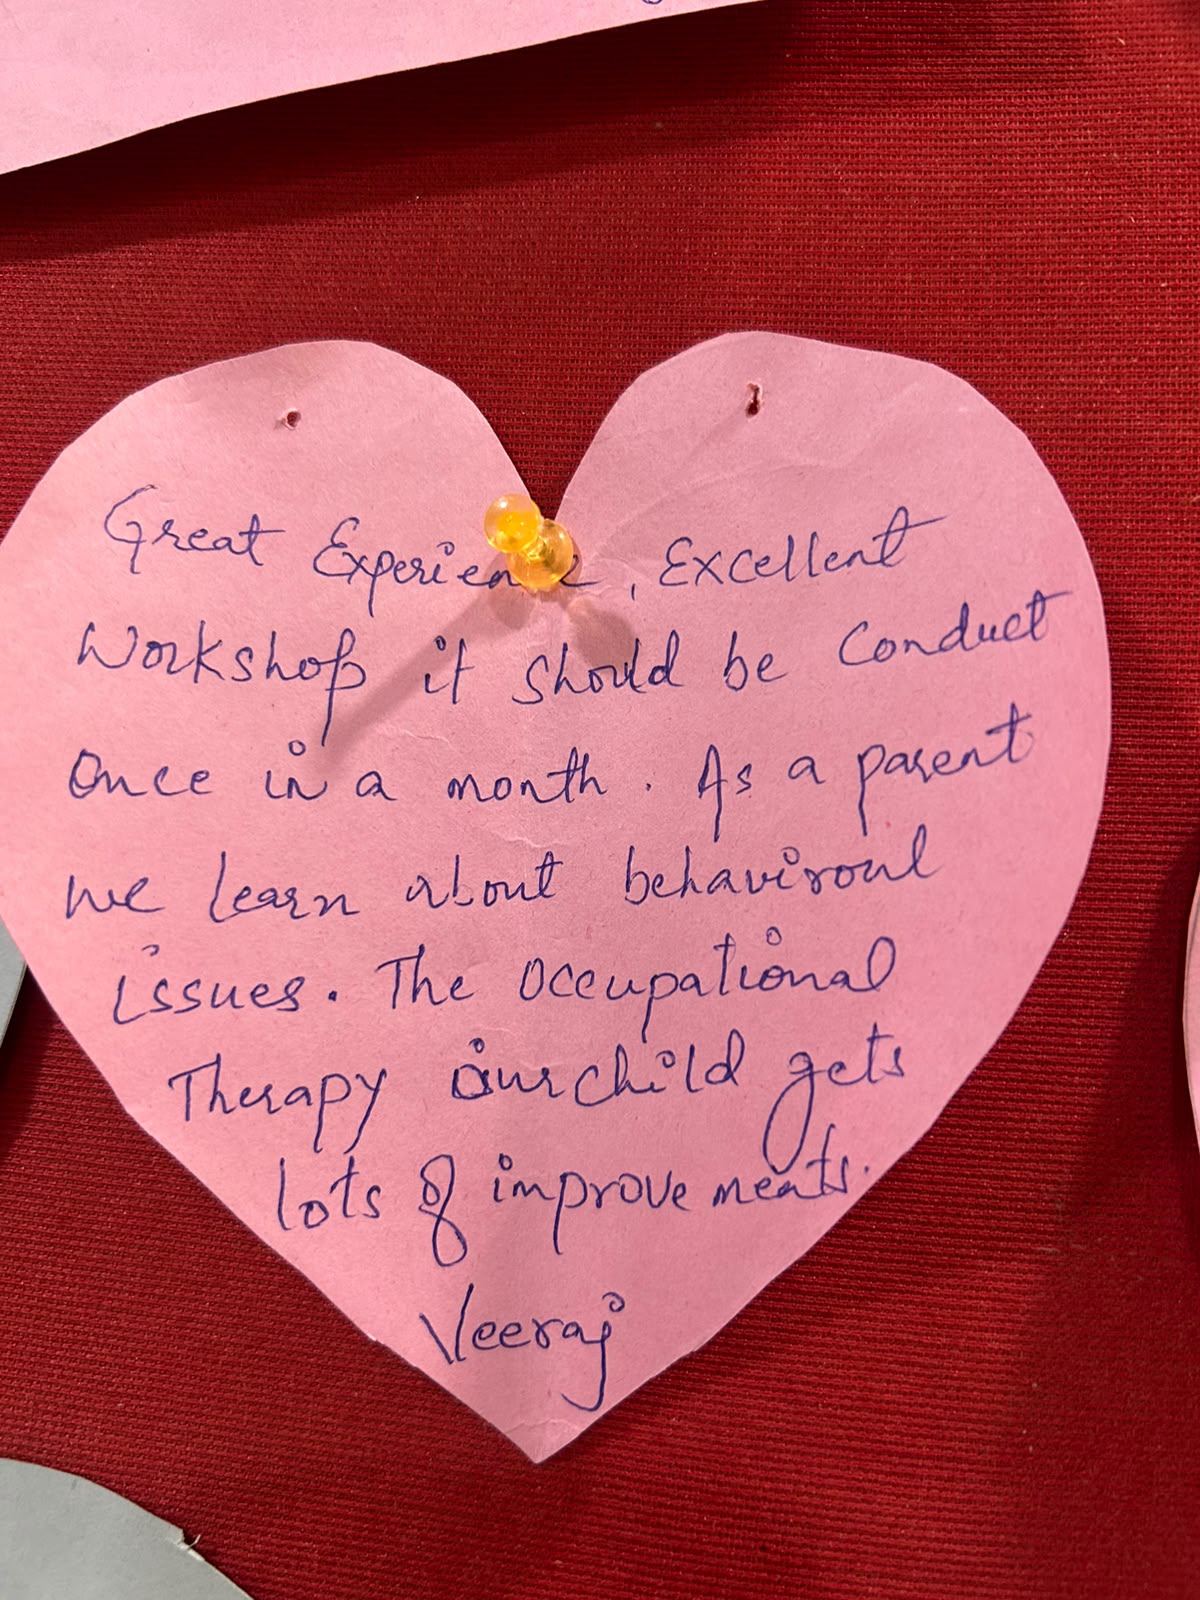 Great Experience, Excellent
Workshop it should be conduct
once in a month. As a parent
we learn about behaviroul
issues. The occupational
Therapy our child gets
lots of improvements.
Veeraj